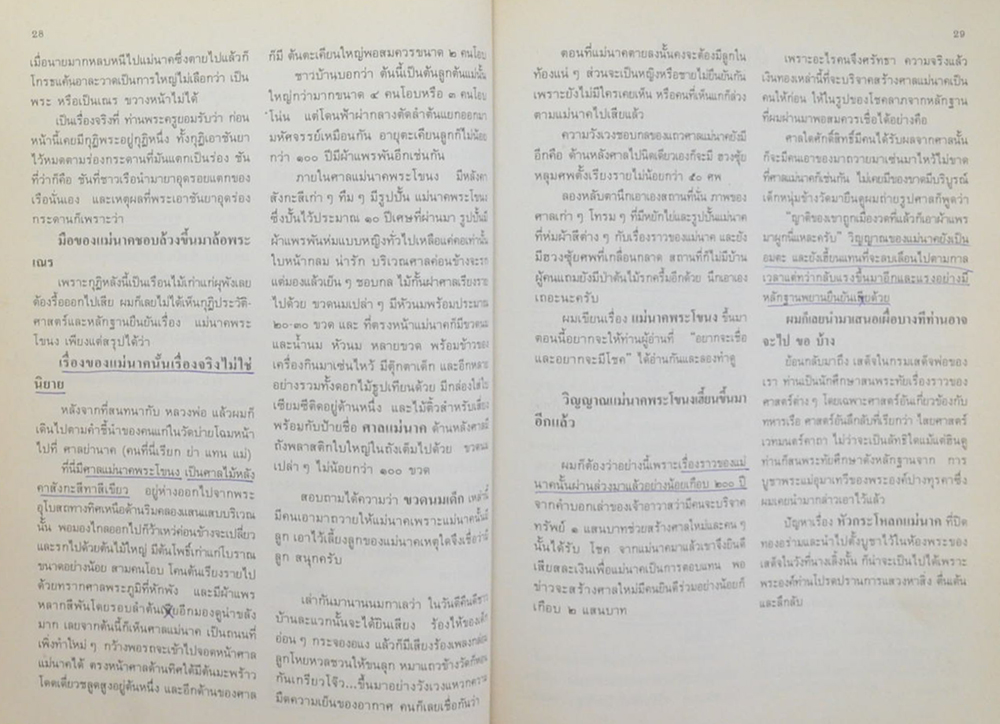 28
เมื่อนายมากหลบหนีไปแม่นาคซึ่งตายไปแล้วก็
โกรธแค้นอาละวาดเป็นการใหญ่ไม่เลือกว่า เป็น
พระ หรือเป็นเณร ขวางหน้าไม่ได้
เป็นเรื่องจริงที่ ท่านพระครูยอมรับว่า ก่อน
หน้านี้เคยมีกุฏิพระอยู่กุฏิหนึ่ง ทั้งกุฏิเอาชันยา
ไว้หมดตามร่องกระดานที่มันแตกเป็นร่อง ชัน
ที่ว่าก็คือ ชันที่ชาวเรือนำมายาอุดรอยแตกของ
เรือนั่นเอง และเหตุผลที่พระเอาชันยาอุดร่อง
กระดานก็เพราะว่า
มือของแม่นาคชอบล้วงขึ้นมาล้อพระ
เณร
เพราะกุฏิหลังนี้เป็นเรือนไม้เก่าแก่ผุพังเลย
ต้องรื้อออกไปเสีย ผมก็เลยไม่ได้เห็นกุฏิประวัติ-
ศาสตร์และหลักฐานยืนยันเรื่อง แม่นาคพระ
โขนง เพียงแต่สรุปได้ว่า
เรื่องของแม่นาคนั้นเรื่องจริงไม่ใช่
นิยาย
หลังจากที่สนทนากับ หลวงพ่อ แล้วผมก็
เดินไปตามคำชี้นำของคนแก่ในวัดบ่ายโฉมหน้า
ไปที่ ศาลย่านาค (คนที่นี่เรียก ย่า แทน แม่)
ที่นี่มีศาลแม่นาคพระโขนง เป็นศาลไม้หลัง
คาสังกะสีทาสีเขียว อยู่ห่างออกไปจากพระ
อุโบสถทางทิศเหนือด้านริมคลองแสนแสบบริเวณ
นั้น พอมองไกลออกไปก็ว้าเหว่ค่อนข้างจะเปลี่ยว
และรกไปด้วยต้นไม้ใหญ่ มีต้นโพธิ์เก่าแก่โบราณ
ขนาดอย่างน้อย สามคนโอบ โคนต้นเรียงรายไป
ด้วยทรากศาลพระภูมิที่หักพัง และมีผ้าแพร
หลากสีพันโดยรอบลำต้นเอียอีกมองดูน่าขลัง
มาก เลยจากต้นนี้ก็เห็นศาลแม่นาค เป็นถนนที่
เพิ่งทำใหม่ ๆ กว้างพอรถจะเข้าไปจอดหน้าศาล
แม่นาคได้ ตรงหน้าศาลด้านทิศใต้มีต้นมะพร้าว
โดดเดี่ยวชลูดสูงอยู่ต้นหนึ่ง และอีกด้านของศาล
ก็มี ต้นตะเคียนใหญ่พอสมควรขนาด ๒ คนโอบ
ชาวบ้านบอกว่า ต้นนี้เป็นต้นลูกต้นแม่นั้น
ใหญ่กว่ามากขนาด ๔ คนโอบหรือ ๓ คนโอบ
โน่น แต่โดนฟ้าผ่ากลางตัดลำต้นแยกออกมา
มหัศจรรย์เหมือนกัน อายุตะเคียนลูกก็ไม่น้อย
กว่า ๑๐๐ ปีมีผ้าแพรพันอีกเช่นกัน
ภายในศาลแม่นาคพระโขนง มีหลังคา
สังกะสีเก่า ๆ ทึม ๆ มีรูปปั้น แม่นาคพระโขนง
ซึ่งปั้นไว้ประมาณ ๑๐ ปีเศษที่ผ่านมา รูปปั้นมี
ผ้าแพรพันห่มแบบหญิงทั่วไปเหลือแค่คอเท่านั้น
ใบหน้ากลม น่ารัก บริเวณศาลค่อนข้างจะรก
แต่มองแล้วเย็น ๆ ชอบกล ไม้กั้นฝาศาลเรียงราย
ไปด้วย ขวดนมเปล่า ๆ มีหัวนมพร้อมประมาณ
๒๐-๓๐ ขวด และ ที่ตรงหน้าแม่นาคก็มีขวดนม
และน้ำนม หัวนม หลายขวด พร้อมข้าวของ
เครื่องกินมาเซ่นไหว้ มีตุ๊กตาเด็ก และอีกหลาย
อย่างรวมทั้งดอกไม้ธูปเทียนด้วย มีกล่องใส่ใบ
เซียมซีติดอยู่ด้านหนึ่ง และไม้ติ้วสำหรับเสี่ยง
พร้อมกับป้ายชื่อ ศาลแม่นาค ด้านหลังศาลมี
ถังพลาสติกใบใหญ่ในถังเต็มไปด้วย ขวดนม
เปล่า ๆ ไม่น้อยกว่า ๑๐๐ ขวด
สอบถามได้ความว่า ขวดนมเด็ก เหล่านี้
มีคนเอามาถวายให้แม่นาคเพราะแม่นาคนั้นมี
ลูก เอาไว้เลี้ยงลูกของแม่นาคเหตุใดจึงเชื่อว่ามี
ลูก สนุกครับ
เล่ากันมานานนมกาเลว่า ในวันดีคืนดีชาว
บ้านละแวกนั้นจะได้ยินเสียง ร้องไห้ของเด็ก
อ่อน ๆ กระจองอแง แล้วก็มีเสียงร้องเพลงกล่อม
ลูกโหยหวลชวนให้ขนลุก หมาแถวข้างวัดก็หอน
กันเกรียวโจ๊ว...ขึ้นมาอย่างวังเวงแหวกความ
มืดความเย็นของอากาศ คนก็เลยเชื่อกันว่า
29
ตอนที่แม่นาคตายลงนั้นคงจะต้องมีลูกใน
ท้องแน่ ๆ ส่วนจะเป็นหญิงหรือชายไม่ยืนยันกัน
เพราะยังไม่มีใครเคยเห็น หรือคนที่เห็นแก่ก็ล่วง
ตามแม่นาคไปเสียแล้ว
ความวังเวงชอบกลของแถวศาลแม่นาคยังมี
อีกคือ ด้านหลังศาลไปนิดเดียวเองก็จะมี ฮวงซุ้ย
หลุมศพตั้งเรียงรายไม่น้อยกว่า ๕๐ ศพ
ลองหลับตานึกเอาเองสถานที่นั่น ภาพของ
ศาลเก่า ๆ โทรม ๆ ที่มีหยักไย่และรูปปั้นแม่นาค
ที่ห่มผ้าสีต่าง ๆ กับเรื่องราวของแม่นาค และยัง
มีฮวงซุ้ยศพที่เกลื่อนกลาด สถานที่ก็ไม่มีบ้าน
ผู้คนแถมยังมีป่าต้นไม้รกครึ้มอีกด้วย นึกเอาเอง
เถอะนะครับ
ผมเขียนเรื่อง แม่นาคพระโขนง ขึ้นมา
ตอนนี้อยากจะให้ท่านผู้อ่านที่ “อยากจะเชื่อ
และอยากจะมีโชค” ได้อ่านกันและลองทำดู
วิญญาณแม่นาคพระโขนงเฮี้ยนขึ้นมา
อีกแล้ว
ผมก็ต้องว่าอย่างนี้เพราะเรื่องราวของแม่
นาคนั้นผ่านล่วงมาแล้วอย่างน้อยเกือบ ๒๐๐ ปี
จากคำบอกเล่าของเจ้าอาวาสว่ามีคนจะบริจาค
ทรัพย์ ๑ แสนบาทช่วยสร้างศาลใหม่และคน ๆ
นั้นได้รับ โชค จากแม่นาคมาแล้วเขาจึงยินดี
เสียสละเงินเพื่อแม่นาคเป็นการตอบแทน พอ
ข่าวจะสร้างศาลใหม่มีคนยินดีร่วมอย่างน้อยก็
เกือบ ๒ แสนบาท
เพราะอะไรคนจึงศรัทธา ความจริงแล้ว
เงินทองเหล่านี้ที่จะบริจาคสร้างศาลแม่นาคเป็น
คนให้ก่อน ให้ในรูปของโชคลาภจากหลักฐาน
ที่ผมผ่านมาพอสมควรเชื่อได้อย่างคือ
ศาลใดศักดิ์สิทธิ์มีคนได้รับผลจากศาลนั้น
ก็จะมีคนเอาของมาถวายมาเซ่นมาไหว้ไม่ขาด
ที่ศาลแม่นาคก็เช่นกัน ไม่เคยมีของขาดมีบริบูรณ์
เด็กหนุ่มข้างวัดมายืนดูผมถ่ายรูปศาลก็พูดว่า
“ญาติของเขาถูกเมื่องวดที่แล้วก็เอาผ้าแพร
มาผูกนี่แหละครับ” วิญญาณของแม่นาคยังเป็น
อมตะ และยังเฮี้ยนแทนที่จะลบเลือนไปตามกาล
เวลาแต่ทว่ากลับแรงขึ้นมาอีกและแรงอย่างมี
หลักฐานพยานยืนยันเสียด้วย
ผมก็เลยนำมาเสนอเผื่อบางทีท่านอาจ
จะไป ขอ บ้าง
ย้อนกลับมาถึง เสด็จในกรมเสด็จพ่อของ
เรา ท่านเป็นนักศึกษาสนพระทัยเรื่องราวของ
ศาสตร์ต่าง ๆ โดยเฉพาะศาสตร์อันเกี่ยวข้องกับ
ทหารเรือ ศาสตร์อันลึกลับที่เรียกว่า ไสยศาสตร์
เวทมนตร์คาถา ไม่ว่าจะเป็นลัทธิใดแม้แต่ฮินดู
ท่านก็สนพระทัยศึกษาดังหลักฐานจาก การ
บูชาพระแม่อุมาเทวีของพระองค์ปางทุรคาซึ่ง
ผมเคยนำมากล่าวเอาไว้แล้ว
ปัญหาเรื่อง หัวกระโหลกแม่นาค ที่ปิด
ทองอร่ามและนำไปตั้งบูชาไว้ในห้องพระของ
เสด็จในวังที่นางเลิ้งนั้น ก็น่าจะเป็นไปได้เพราะ
พระองค์ท่านโปรดปรานการแสวงหาสิ่ง ตื่นเต้น
และลึกลับ